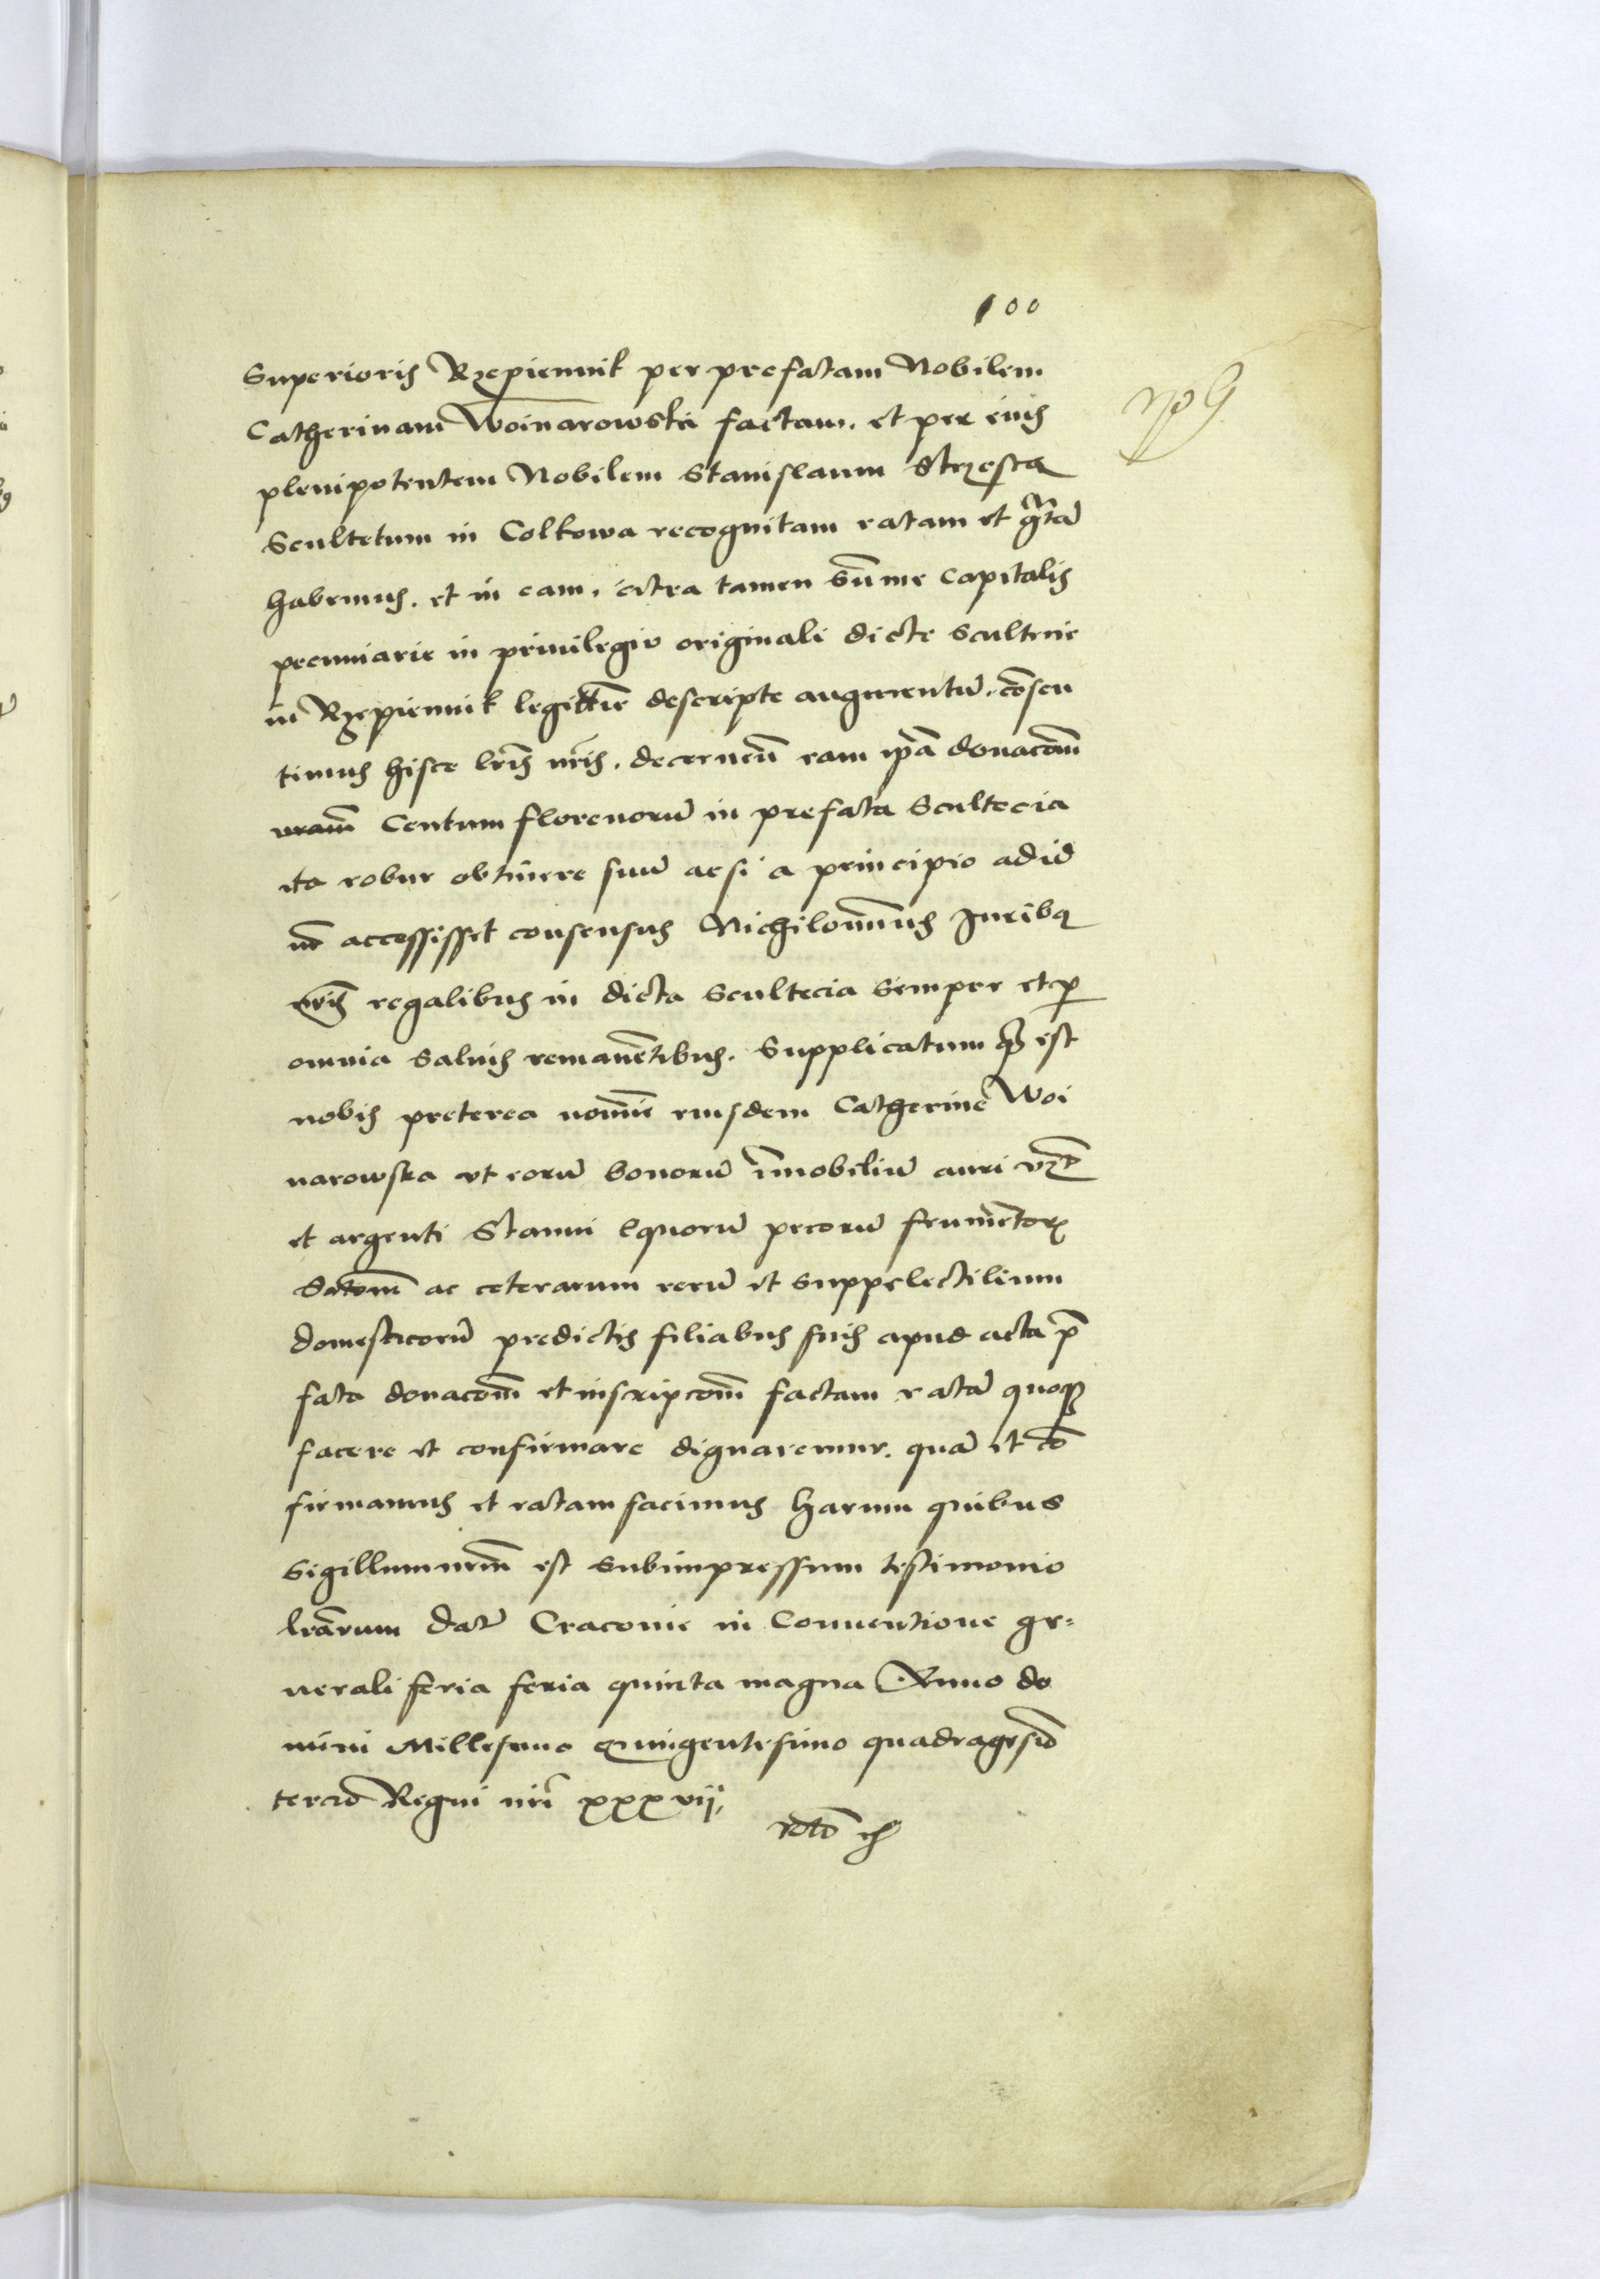 100
Superioris Rzepiennik per prefatam Nobilem
Catherinam Woinarowska factam. et per eius
plenipotentem Nobilem Stanislaum Strzesca
Scultetum in Colkowa recognitam ratam et gratã
habemus. et in eam. citra tamen sum̃e capitalis
pecuniarie in priuilegio originali dicte Scultecie
in Rzepiennik legittime descripte augmentũ. cõsen
timus hisce lr̃is nr̃is. decernen̄ eam ip̃ã donacõem
Centum florenorũ in prefata Scultecia
ita robur obtinere suũ ac si a principio ad id
nr̃ accessisset consensus Nichilominus Iuribꝫ
nr̃is regalibus in dicta Scultecia semper et p
omnia saluis remanẽtibus. Supplicatum est
nobis preterea nomine eiusdem Catherine Woi
narowska ut eorũ bonorũ im̃obiliũ auri
et argenti Stanni Equorũ pecorũ frumẽtorꝫ
ac ceterarum rerũ et suppelectilium
domesticorũ predictis filiabus suis apud acta p̃
fata donacõem et inscripcõem factam ratã quoqꝫ
facere et confirmare dignaremur. quã et cõ
firmamus et ratam facimus harum quibus
Sigillum nr̃m est subimpressum testimonio
lr̃arum Dat̃ Cracouie in Conuentione ge=
nerali feria feria quinta magna Anno do
mini Millesimo Quingentesimo quadragesiõ
tercio Regni nr̃i xxxvij